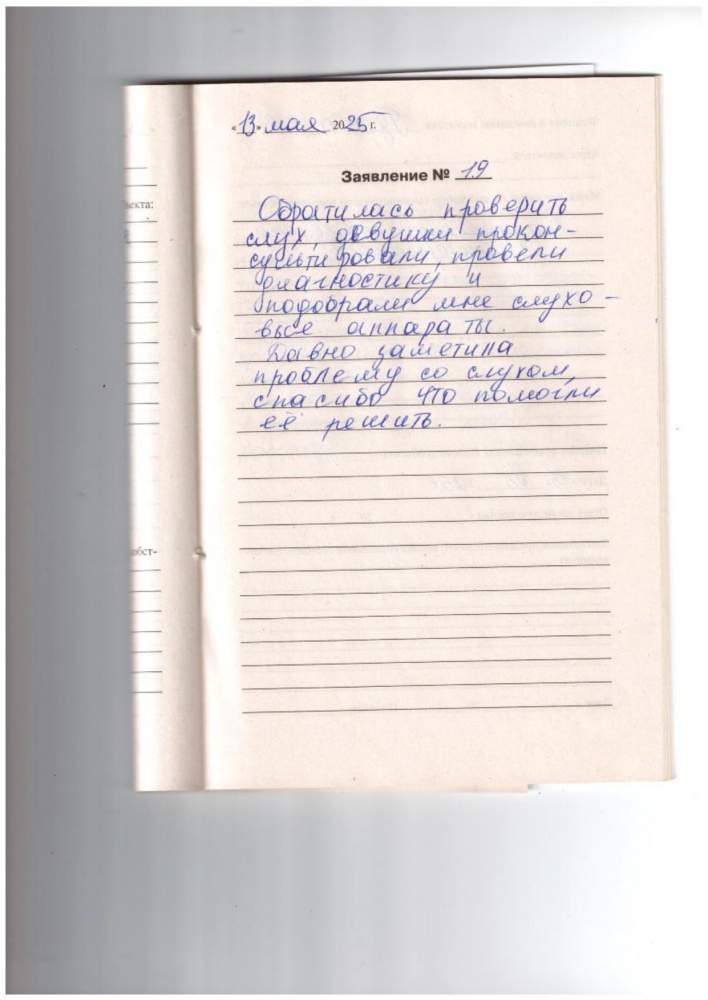 «13» мая 2025 г.
Заявление № 19
Обратилась проверить
слух, девушки прокон-
сультировали, провели
диагностику и
подобрали мне слухо-
вые аппараты.
Давно заметила
проблему со слухом,
спасибо что помогли
её решить.
екта:
обст-